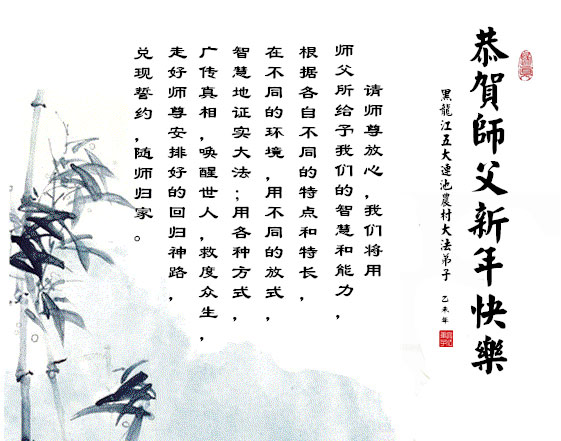 恭賀師父新年快樂
黑龍江五大連池農村大法弟子
乙未年
请师尊放心，我们将用
师父所给予我们的智慧和能力，
根据各自不同的特点和特长，
在不同的环境，用不同的放式，
智慧地证实大法；用各种方式，
广传真相，唤醒世人，救度众生，
走好师尊安排好的回归神路，
兑现誓约，随师归家。